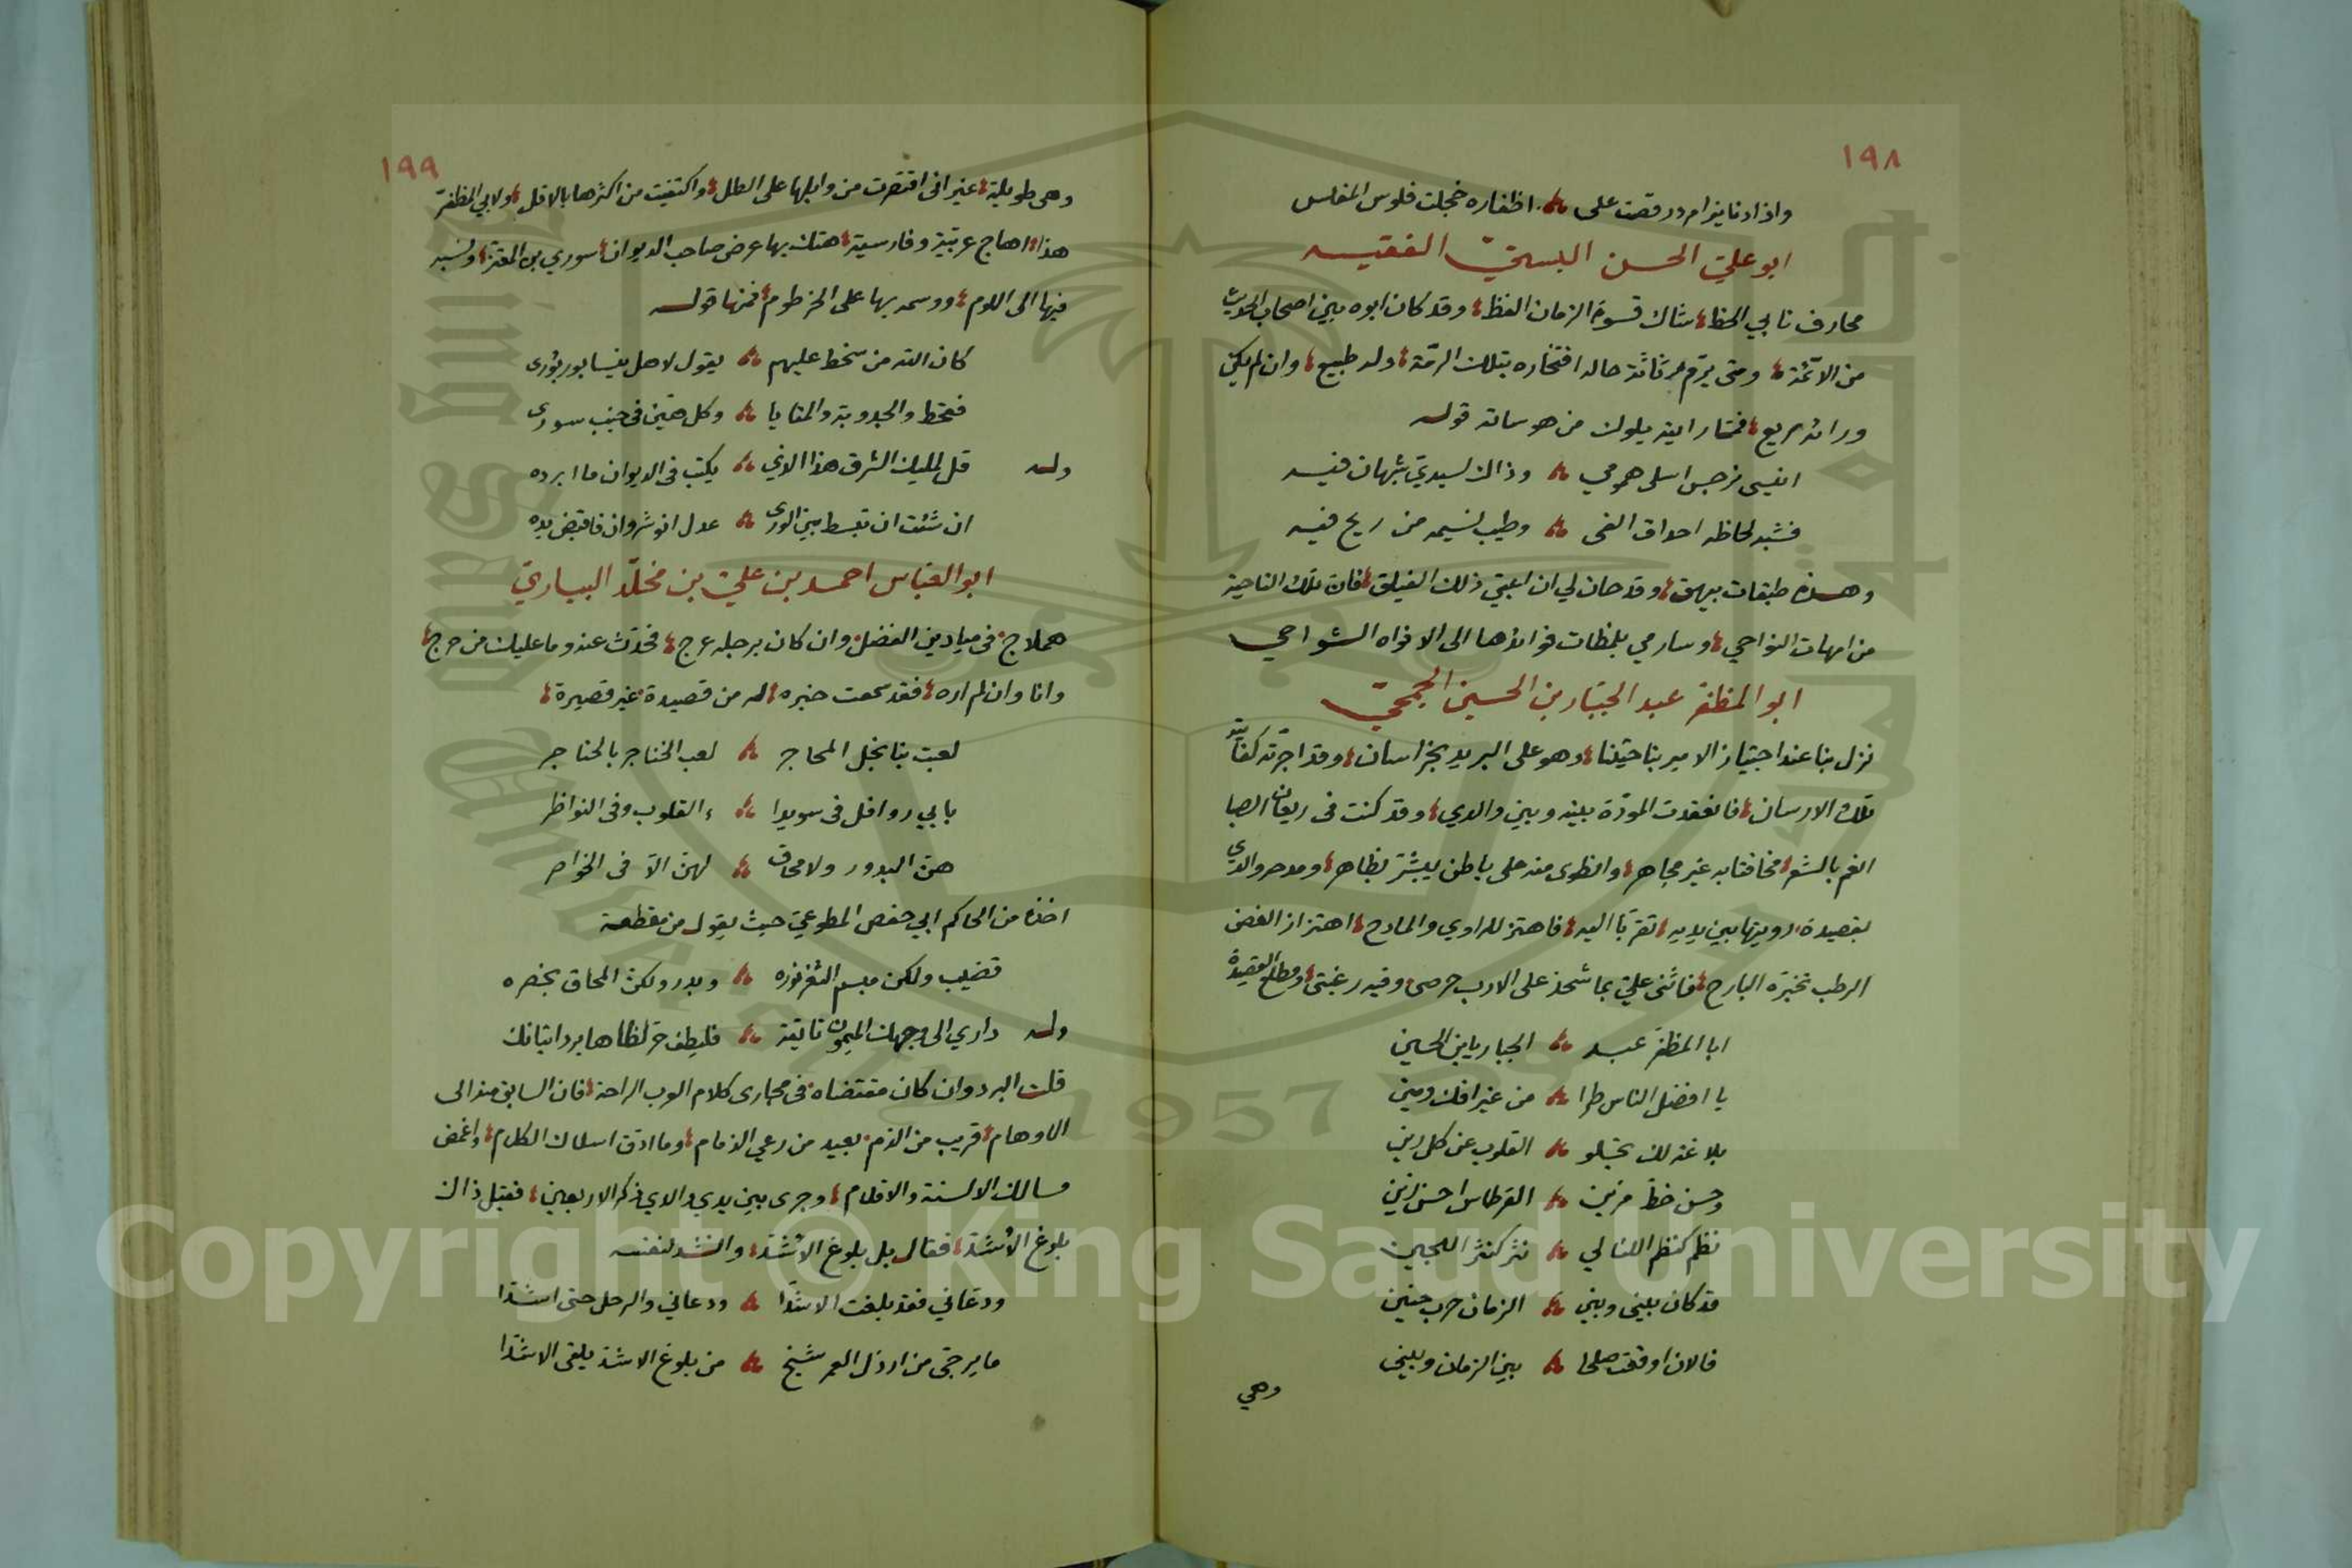 ١٩٨
واذا دنا ينزام درقصت على اظفاره خجلت فلوس المفلس
ابو علي الحسن البستي الفقيه
محارف نابي الحظ شاك قسوة الزمان الفظ وقد كان ابوه بين اصحاب الحديث
من الائمة ومتى يرم رثاثة حاله افتخاره بتلك الرمة وله طبع وان لم يكن
ورائه ريع فمما رايته يلوك من هوساته قوله
انيسى نرجس اسلى همومي وذاك لسيدي شبهان فيه
فشبه لحاظه احداق الفى وطيب نسيمه من ريح فيه
وهذه طبقات بيهق وقد حان لي ان اعبي ذلك الفيلق فان تلك الناحية
من امهات النواحي وسارمي بلمظات فوائدها الى الافواه الشواحي
ابو المظفر عبد الجبار بن الحسن الجمحي
نزل بنا عند اجتياز الامير بناحيتنا وهو على البريد بخراسان وقد اجرته كفايته
تلك الارسان فانعقدت المودة بينه وبين والدي وقد كنت فى ريعان الصبا
انغم بالشعر مخافتا به غير مجاهر وانطوى منه على باطن يبشر بظاهر ومدحه والدي
بقصيدة رويتها بين يديه تقربا اليه فاهتز للراوي والمادح اهتزاز الغصن
الرطب تخبره البارح فاثنى علي بما شحذ على الادب حرصى وفيه رغبتى ومطلع القصيدة
ابا المظفر عبد الجبار يا بن الحسين
يا افضل الناس طرا من غير افك ومين
بلاغة لك تجلو القلوب عن كل رين
وحسن خط مزين القرطاس احسن زين
نظم كنظم اللئالي نثر كنثر اللجين
قد كان بينى وبين الزمان حرب حنين
فالان اوقعت صلحا بين الزمان وبينى
وهي
١٩٩
وهى طويلة غير انى اقتصرت من وابلها على الطل واكتفيت من اكثرها بالاقل ولابي المظفر
هذا اهاج عربية وفارسية هتك بها عرض صاحب الديوان سوري بن المعتز ونسبه
فيها الى اللوم ووسمه بها على الخرطوم فمنها قوله
كان الله من سخط عليهم يقول لاهل نيسابور بورى
فقحط والجدوبة والمنايا وكل هين فى جنب سورى
وله قل لمليك الشرق هذا الذي يكتب فى الديوان ما ابرده
ان شئت ان تبسط بين الورى عدل انوشروان فاقبض يده
ابو العباس احمد بن علي بن مخلد البياري
هملاج فى ميادين الفضل وان كان برجله عرج فحدث عنه وما عليك من حرج
وانا وان لم اره فقد سمعت خبره له من قصيدة غير قصيرة
لعبت بنا نجل المحاجر لعب الخناجر بالحناجر
بابي روافل فى سويدا ء القلوب وفى النواظر
هن البدور ولا محاق لهن الا فى الخواصر
اخذه من الحاكم ابي حفص المطوعي حيث يقول من مقطعة
قضيب ولكن مبسم الثغر نوره وبدر ولكن المحاق بخصره
وله داري الى وجهك الميمون تايقة فليطف حر لظاها برد اتيانك
قلت البرد وان كان مقتضاه فى مجارى كلام العرب الراحة فان السابق منه الى
الاوهام قريب من الذم بعيد من رعي الذمام وما ادق اسلاك الكلام واغمض
مسالك الالسنة والاقلام وجرى بين يدي والدي ذكر الاربعين فقيل ذاك
بلوغ الاشد فقال بل بلوغ الاشد وانشد لنفسه
ودعاني فقد بلغت الاشدا ودعاني والرحل حتى اشدا
ما يرجى من ارذل العمر شيخ من بلوغ الاشد يلقى الاشدا
Copyright © King Saud University
1957